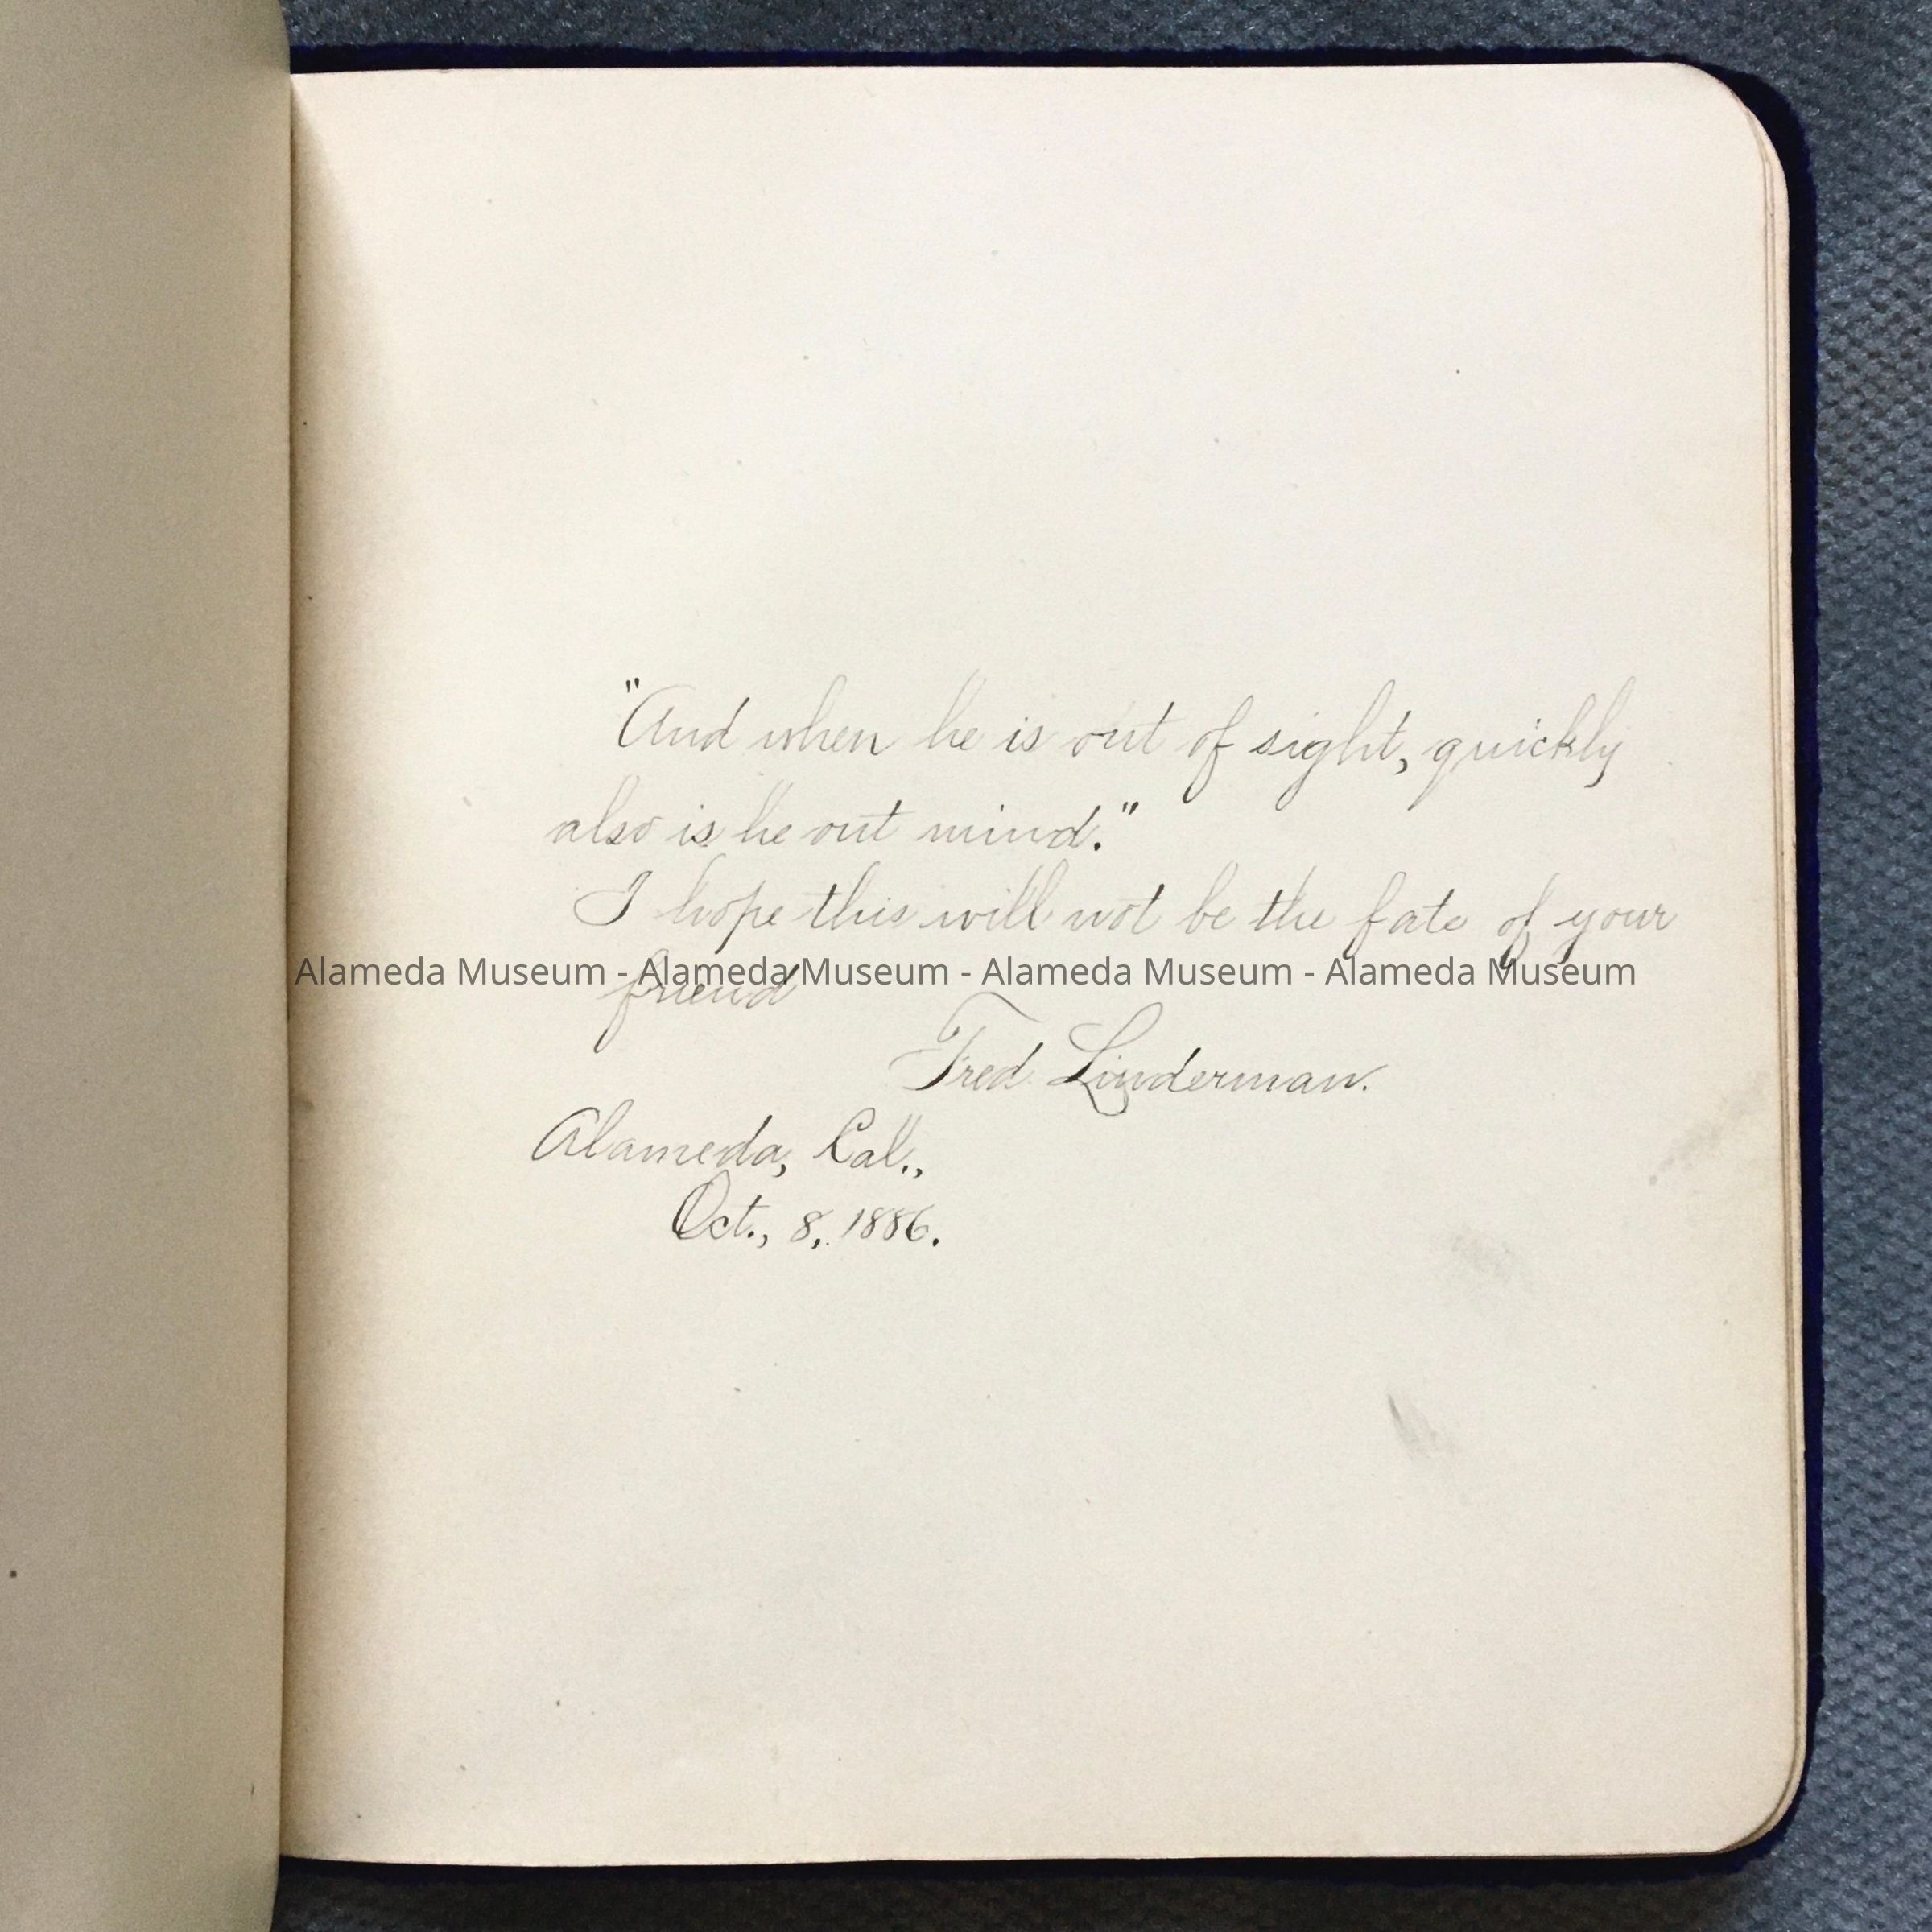 "And when he is out of sight, quickly
also is he out mind."
I hope this will not be the fate of your
Alameda Museum - Alameda Museum - Alameda Museum - Alameda Museum
friend
Fred Linderman.
Alameda, Cal.,
Oct., 8, 1886.